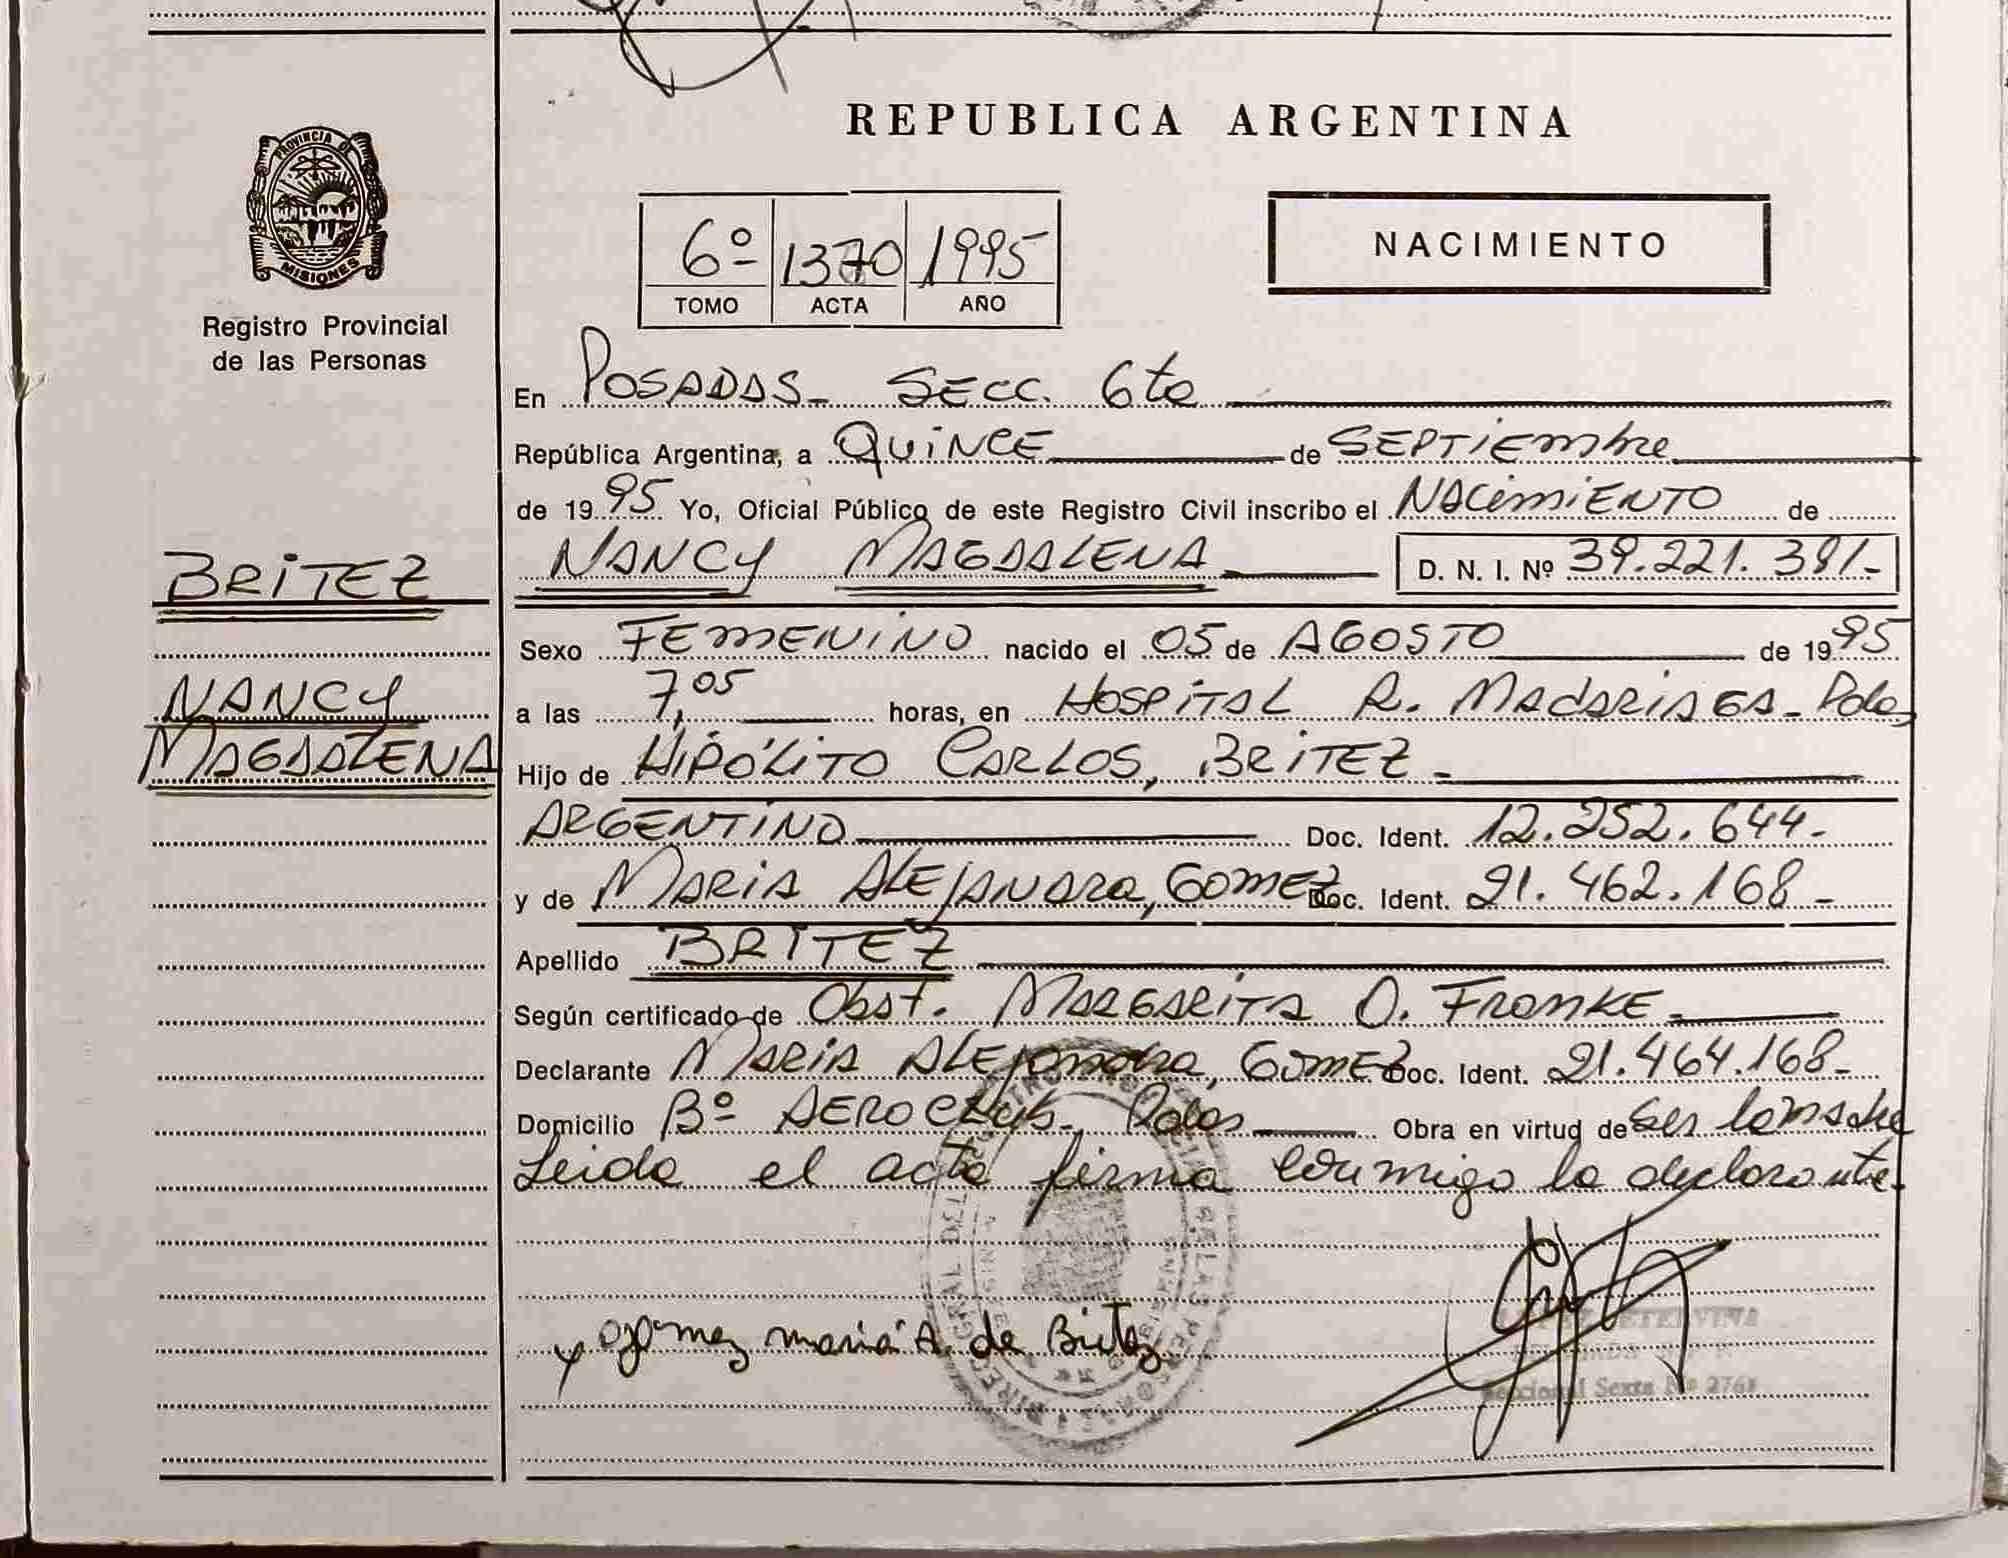 PROVINCIA DE
MISIONES
Registro Provincial
de las Personas
BRITEZ
NANCY
MAGDALENA
REPUBLICA ARGENTINA
6º 1370 1995
TOMO ACTA AÑO
NACIMIENTO
En POSADAS- SECC. 6ta
República Argentina, a QUINCE de SEPTIEMbre
de 1995 Yo, Oficial Público de este Registro Civil inscribo el NACIMIENTO de
NANCY MAGDALENA D. N. I. Nº 39.221.381.-
Sexo FEMENINO nacido el 05 de AGOSTO de 1995
a las 7,05 horas, en HOSPITAL R. MADARIAGA-
Hijo de HIPÓLITO CARLOS, BRITEZ-
ARGENTINO Doc. Ident. 12.252.644-
y de MARIA ALEJANDRA, GOMEZ Doc. Ident. 21.462.168-
Apellido BRITEZ
Según certificado de Obst. MARGARITA O. FRANKE
Declarante MARIA ALEJANDRA, GOMEZ Doc. Ident. 21.464.168-
Domicilio Bº AEROCLUB- Obra en virtud de ser la madre
Leida el acta firma conmigo la declarante.
Gomez maria A. de Britez
Seccional Sexta Nº 276